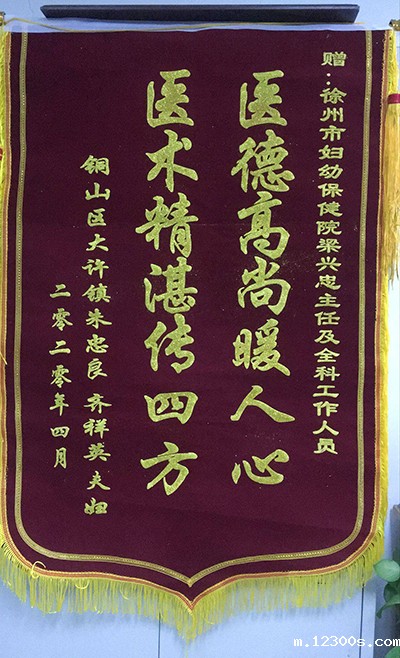 赠:徐州市妇幼保健院梁兴忠主任及全科工作人员
医德高尚暖人心
医术精湛传四方
铜山区大许镇朱忠良 齐祥英夫妇
二零二零年四月
m.12300s.com